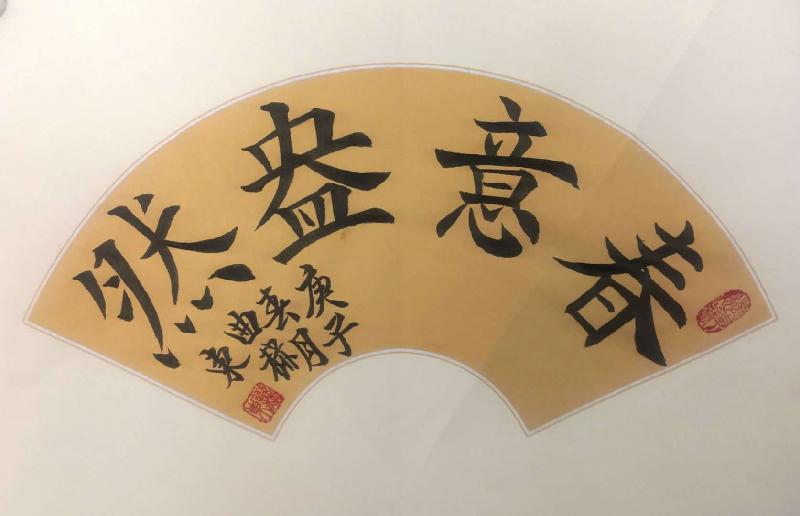 春意盎然
庚子
春月
曲
東